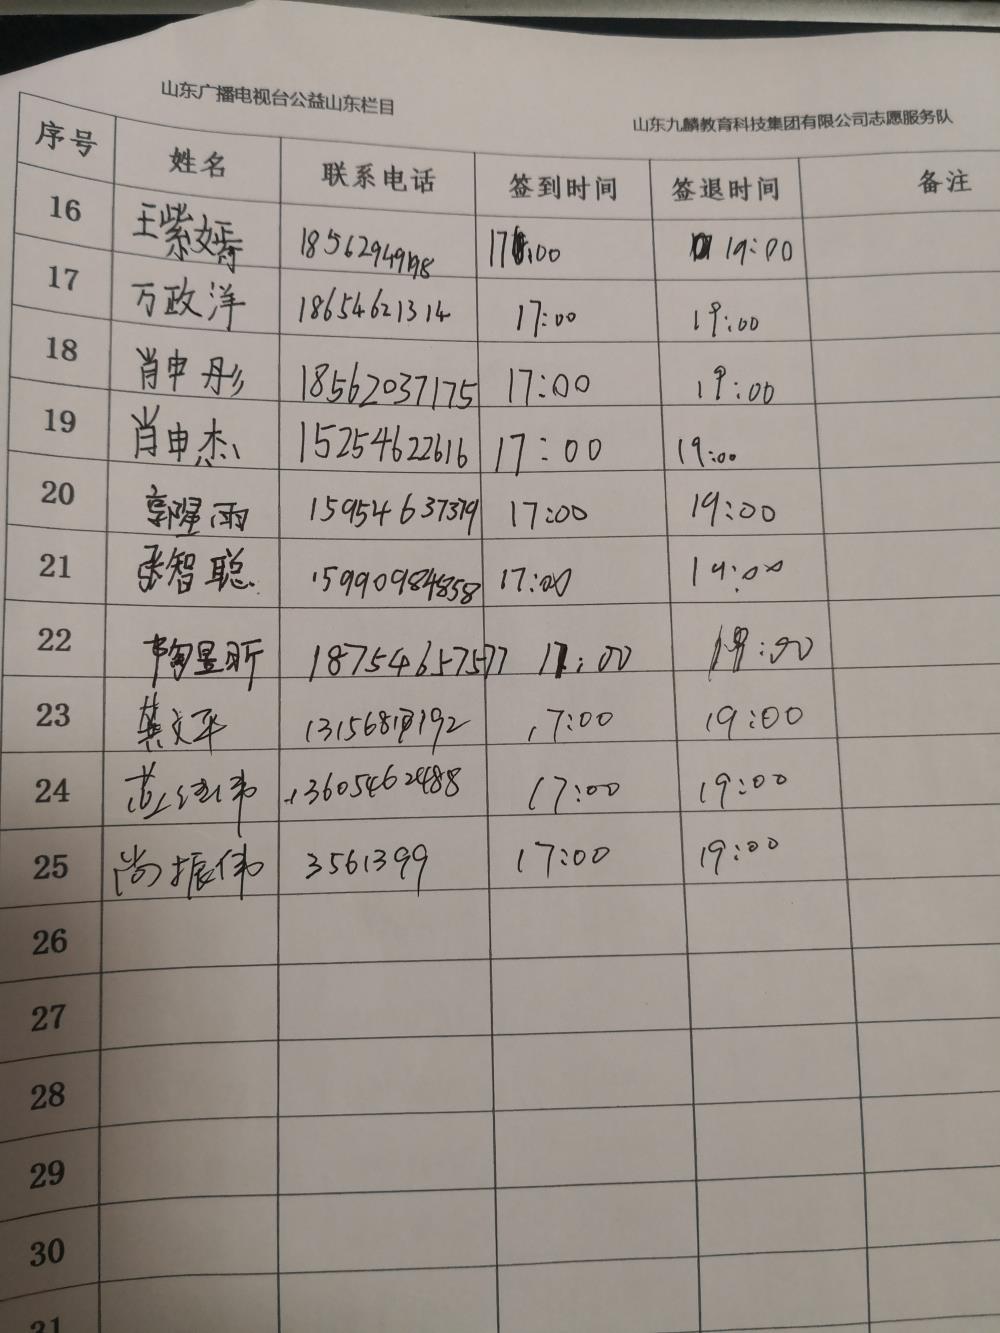 山东广播电视台公益山东栏目
山东九麟教育科技集团有限公司志愿服务队
序号 姓名 联系电话 签到时间 签退时间 备注
16 王紫嫣 17:00 19:00
17 万政洋 18654621314 17:00 19:00
18 肖申彤 18562037175 17:00 19:00
19 肖申杰 15254622616 17:00 19:00
20 郭瑾雨 15954637379 17:00 19:00
21 张智聪 15990984858 17:00 19:00
22 陶昱昕 18754657577 17:00 19:00
23 17:00 19:00
24 13605462488 17:00 19:00
25 尚振伟 3561399 17:00 19:00
26
27
28
29
30
31